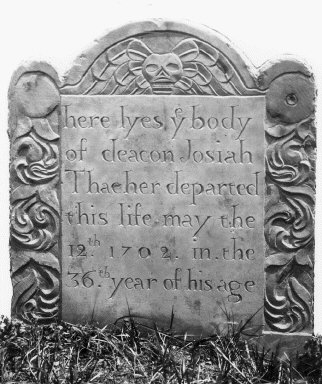 here lyes ẏ body
of deacon Josiah
Thacher departed
this life may the
12.th 1702. in. the
36.th year of his age